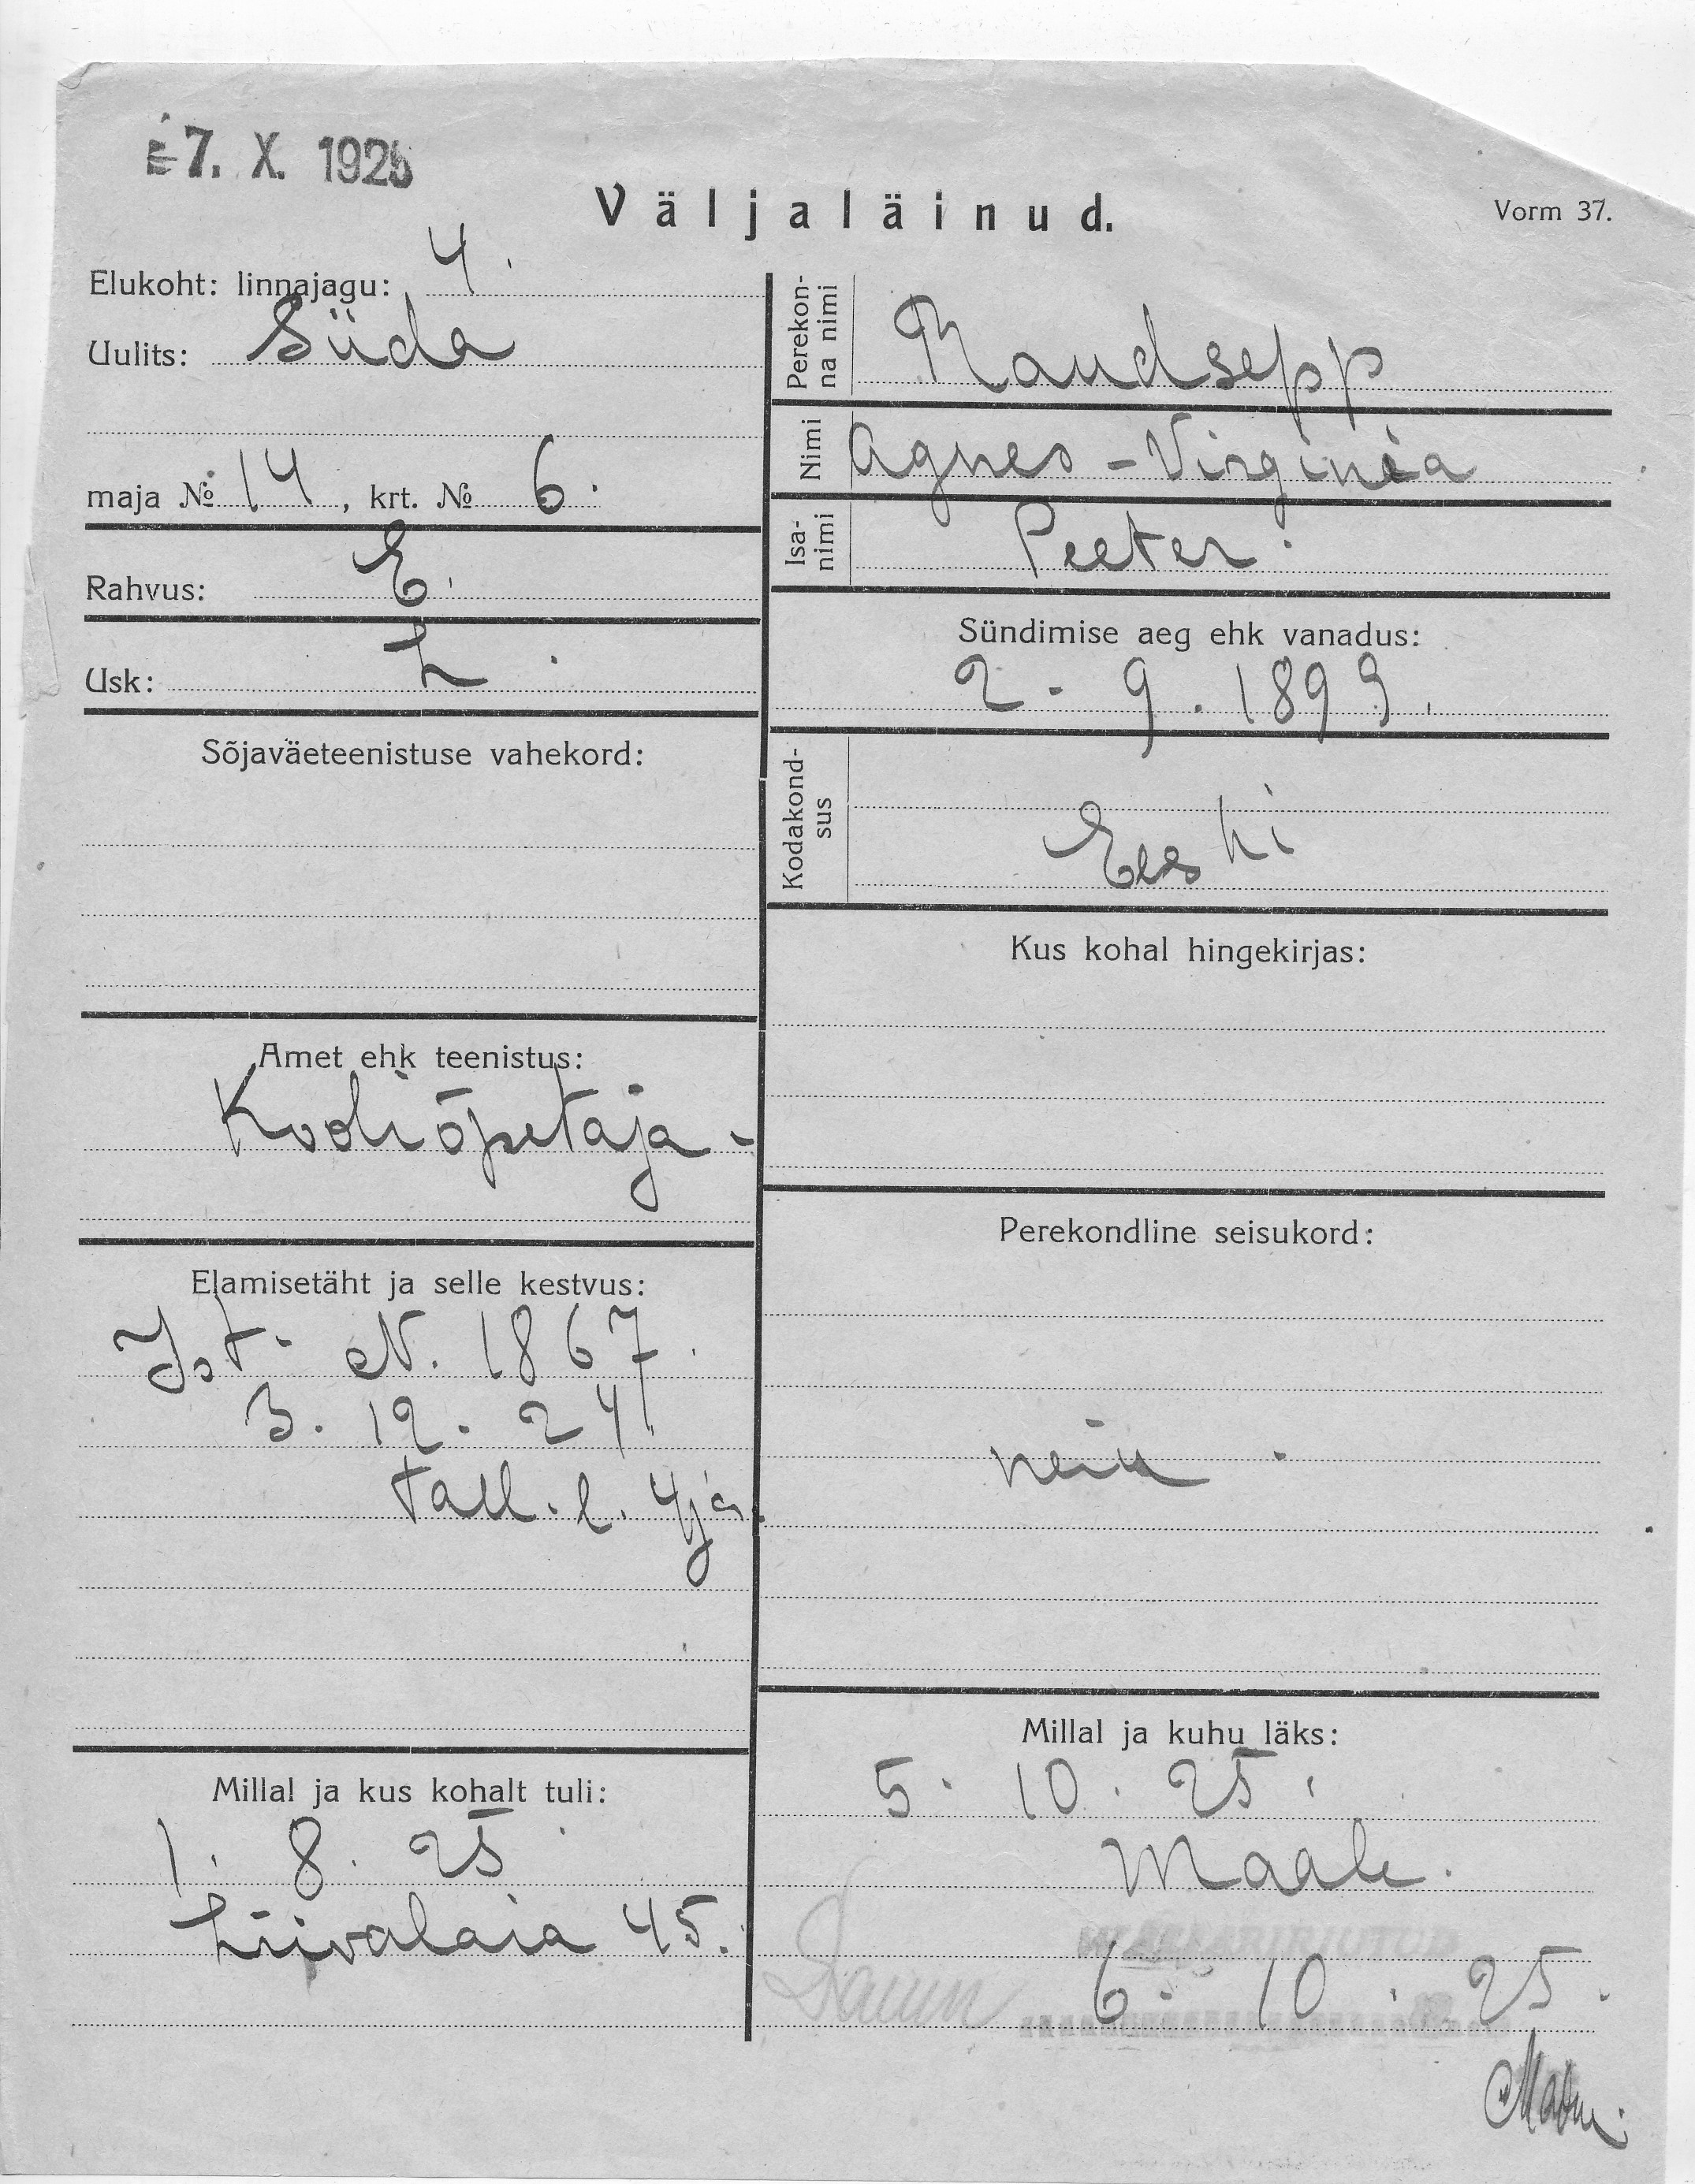 7. X. 1925
Väljaläinud.
Vorm 37.
Elukoht: linnajagu: 4.
Uulits: Süda
maja № 14, krt. № 6.
Rahvus: E.
Usk: L.
Sõjaväeteenistuse vahekord:
Amet ehk teenistus:
Kooliõpetaja.
Elamisetäht ja selle kestvus:
Is.t. N. 1867.
3. 12. 24
Tall. l. 4 js.
Millal ja kus kohalt tuli:
1. 8. 25.
Liivalaia 45.
Perekon-
na nimi
Raudsepp
Nimi Agnes-Virginia
Isa-
nimi
Peeter.
Sündimise aeg ehk vanadus:
2. 9. 1899.
Kodakond-
sus
Eesti
Kus kohal hingekirjas:
Perekondline seisukord:
neiu.
Millal ja kuhu läks:
5. 10. 25.
Maale.
6. 10. 25.